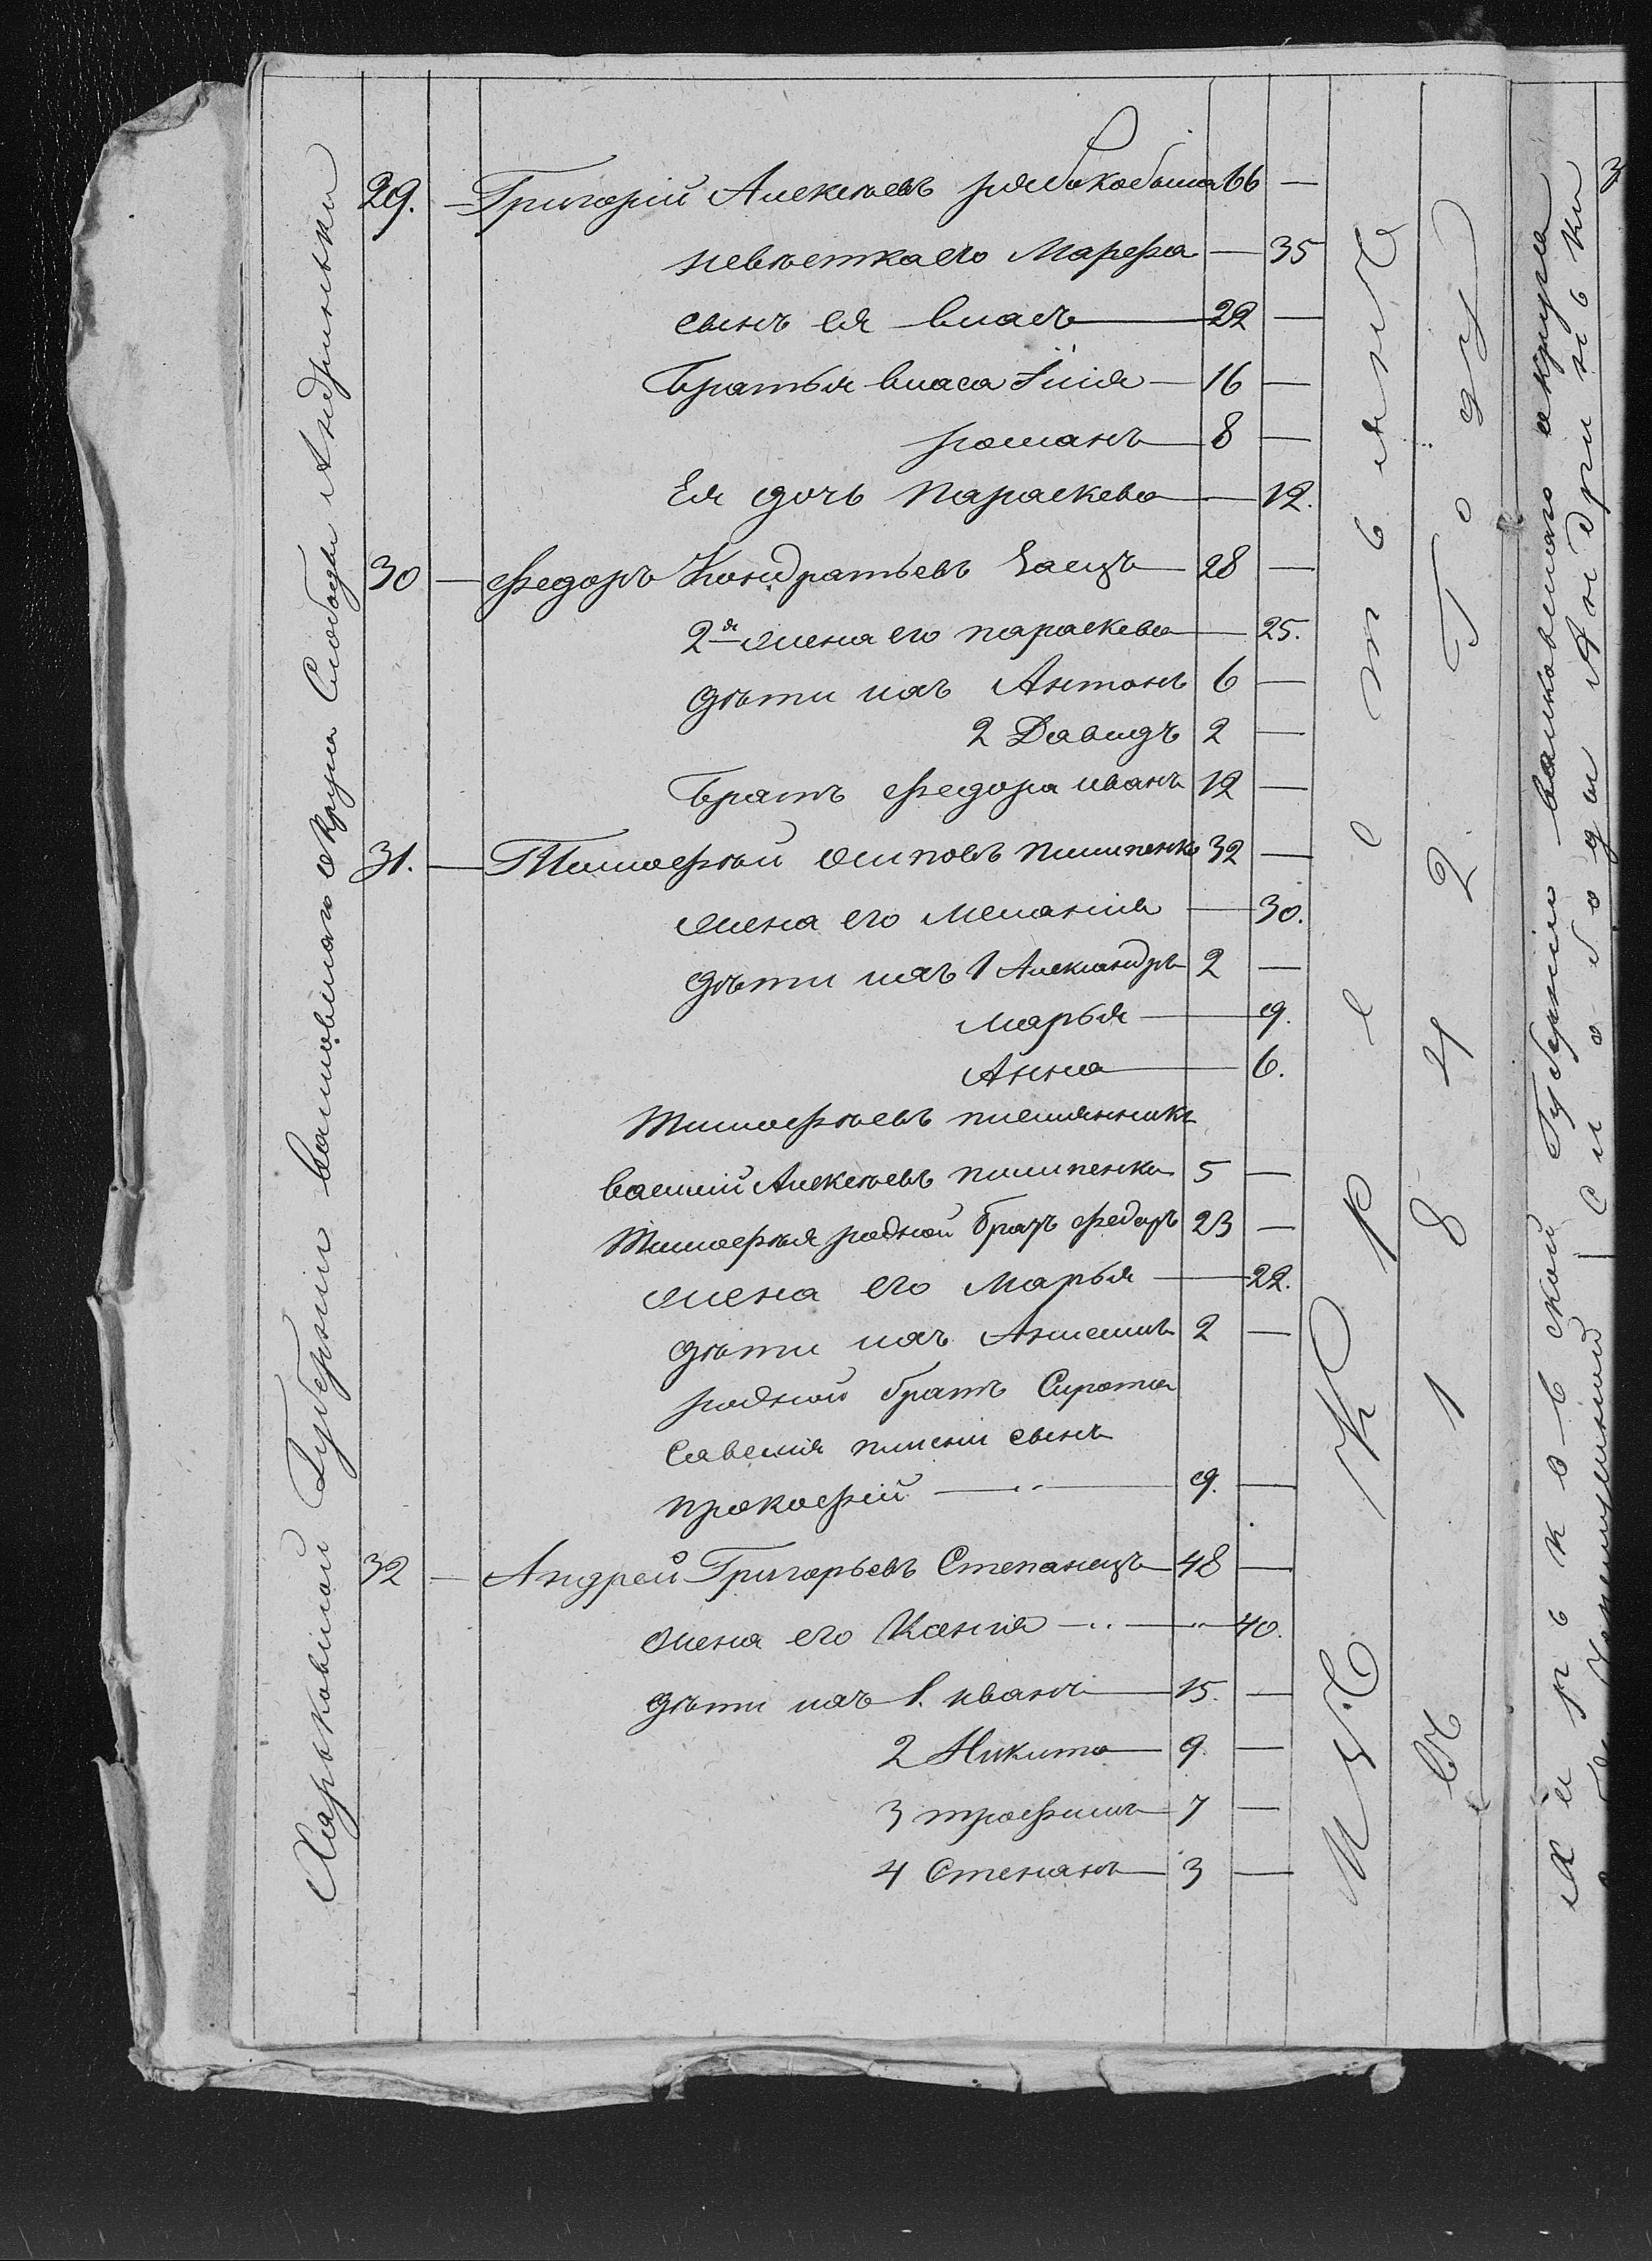 Харьковской Губерніи Валковскаго округа Слободы Андриевки
29. — Григорій Алексѣевъ рябокобыла 66 —
невѣстка его Марефа — 35
сынъ ея власъ — 22 —
Братья власа Илія — 16 —
романъ — 8 —
Ея дочь Параскева — 12.
30 — Федоръ Кондратьевъ Заецъ — 28 —
2я жена его параскева — 25.
дѣти ихъ Антонъ 6 —
2 Давидъ 2 —
Братъ Федора иванъ 12 —
31. — Тимофѣй осиповъ пилипенко 32 —
жена его Меланія — 30.
дѣти ихъ 1 Александръ 2 —
Марья — 9.
Анна — 6.
Тимофѣевъ племянникъ
василій Алексѣевъ пилипенко 5 —
Тимофѣя родной братъ федоръ 23 —
жена его Марья — 22.
дѣти ихъ 2 —
родной братъ Сирота
Савелія сынъ
прокофій — 9. —
32 — Андрей Григорьевъ Степанецъ — 48 —
жена его Ксенія — 40.
дѣти ихъ 1. иванъ — 15. —
2 Никита — 9. —
3 трофимъ — 7 —
4 Степанъ — 3 —
Крестьянъ
1842 Году
Харьковской Губерніи валковскаго округа
Слободы Андриевки